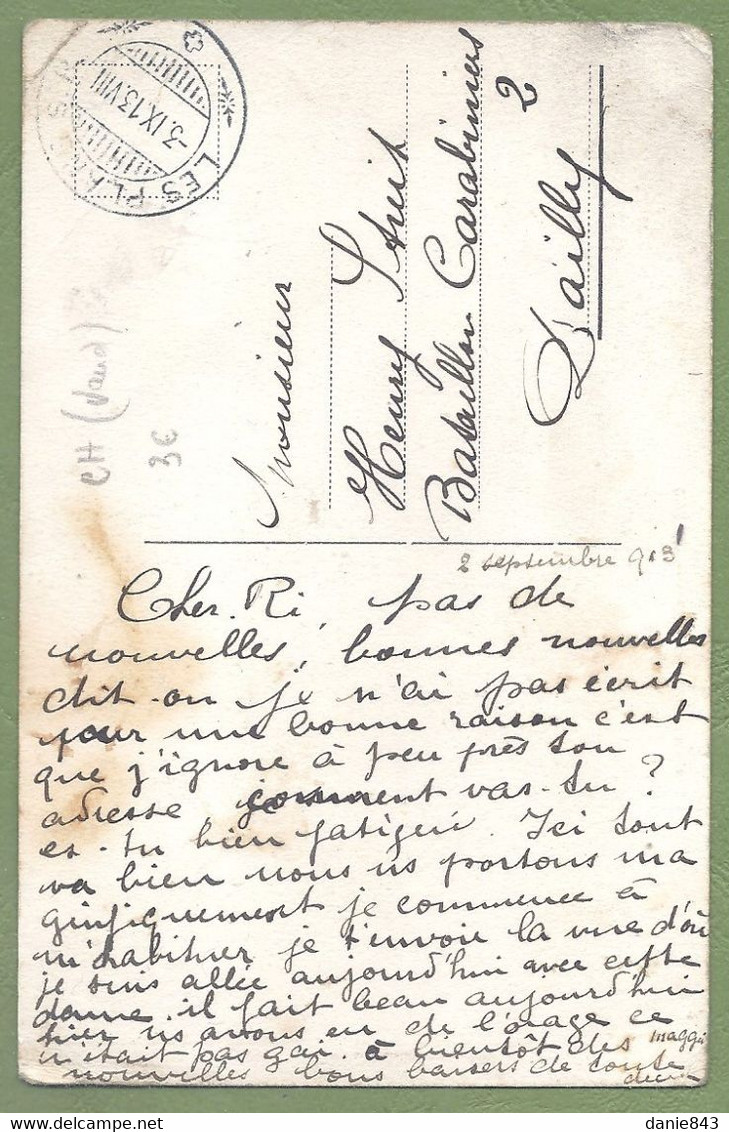 LES PLANS
-3.IX.13.VIII
CH (Vaud)
3€
Monsieur
Henry
Bataillon Carabiniers
2
Dailly
2 septembre 913
Cher Ri, pas de
nouvelles, bonnes nouvelles
dit-on je n'ai pas écrit
pour une bonne raison c'est
que j'ignore à peu près ton
adresse, comment vas-tu ?
es-tu bien fatigué. Ici tout
va bien nous ns portons ma
gnifiquement je commence à
m'habituer je t'envoie la vue d'où
je suis allée aujourd'hui avec cette
dame. il fait beau aujourd'hui
hier ns avons eu de l'orage ce
n'était pas gai. à bientôt des
nouvelles bons baisers de toute
maggi
danie843